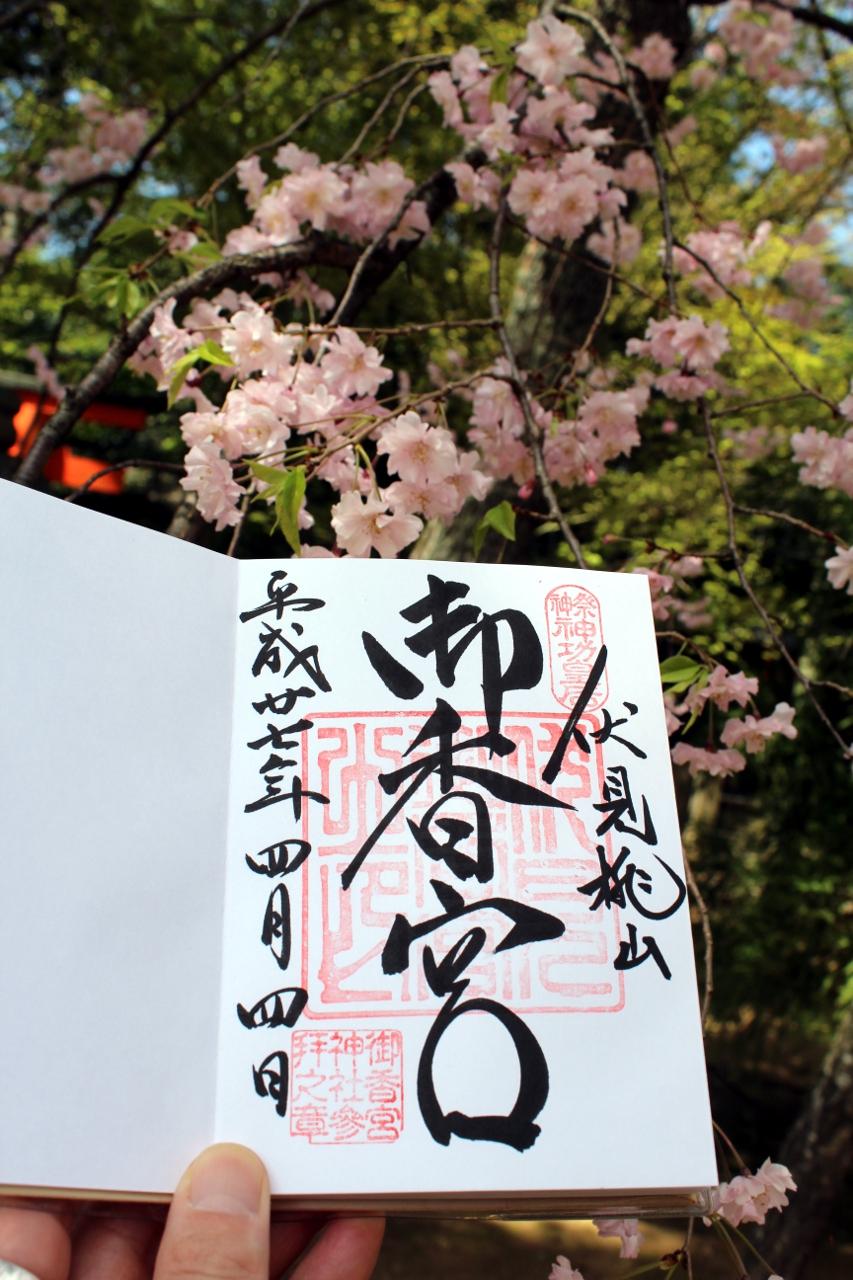 祭神
神功皇后
伏見桃山
御香宮
平成廿七年四月四日
御香宮
神社參
拝之章